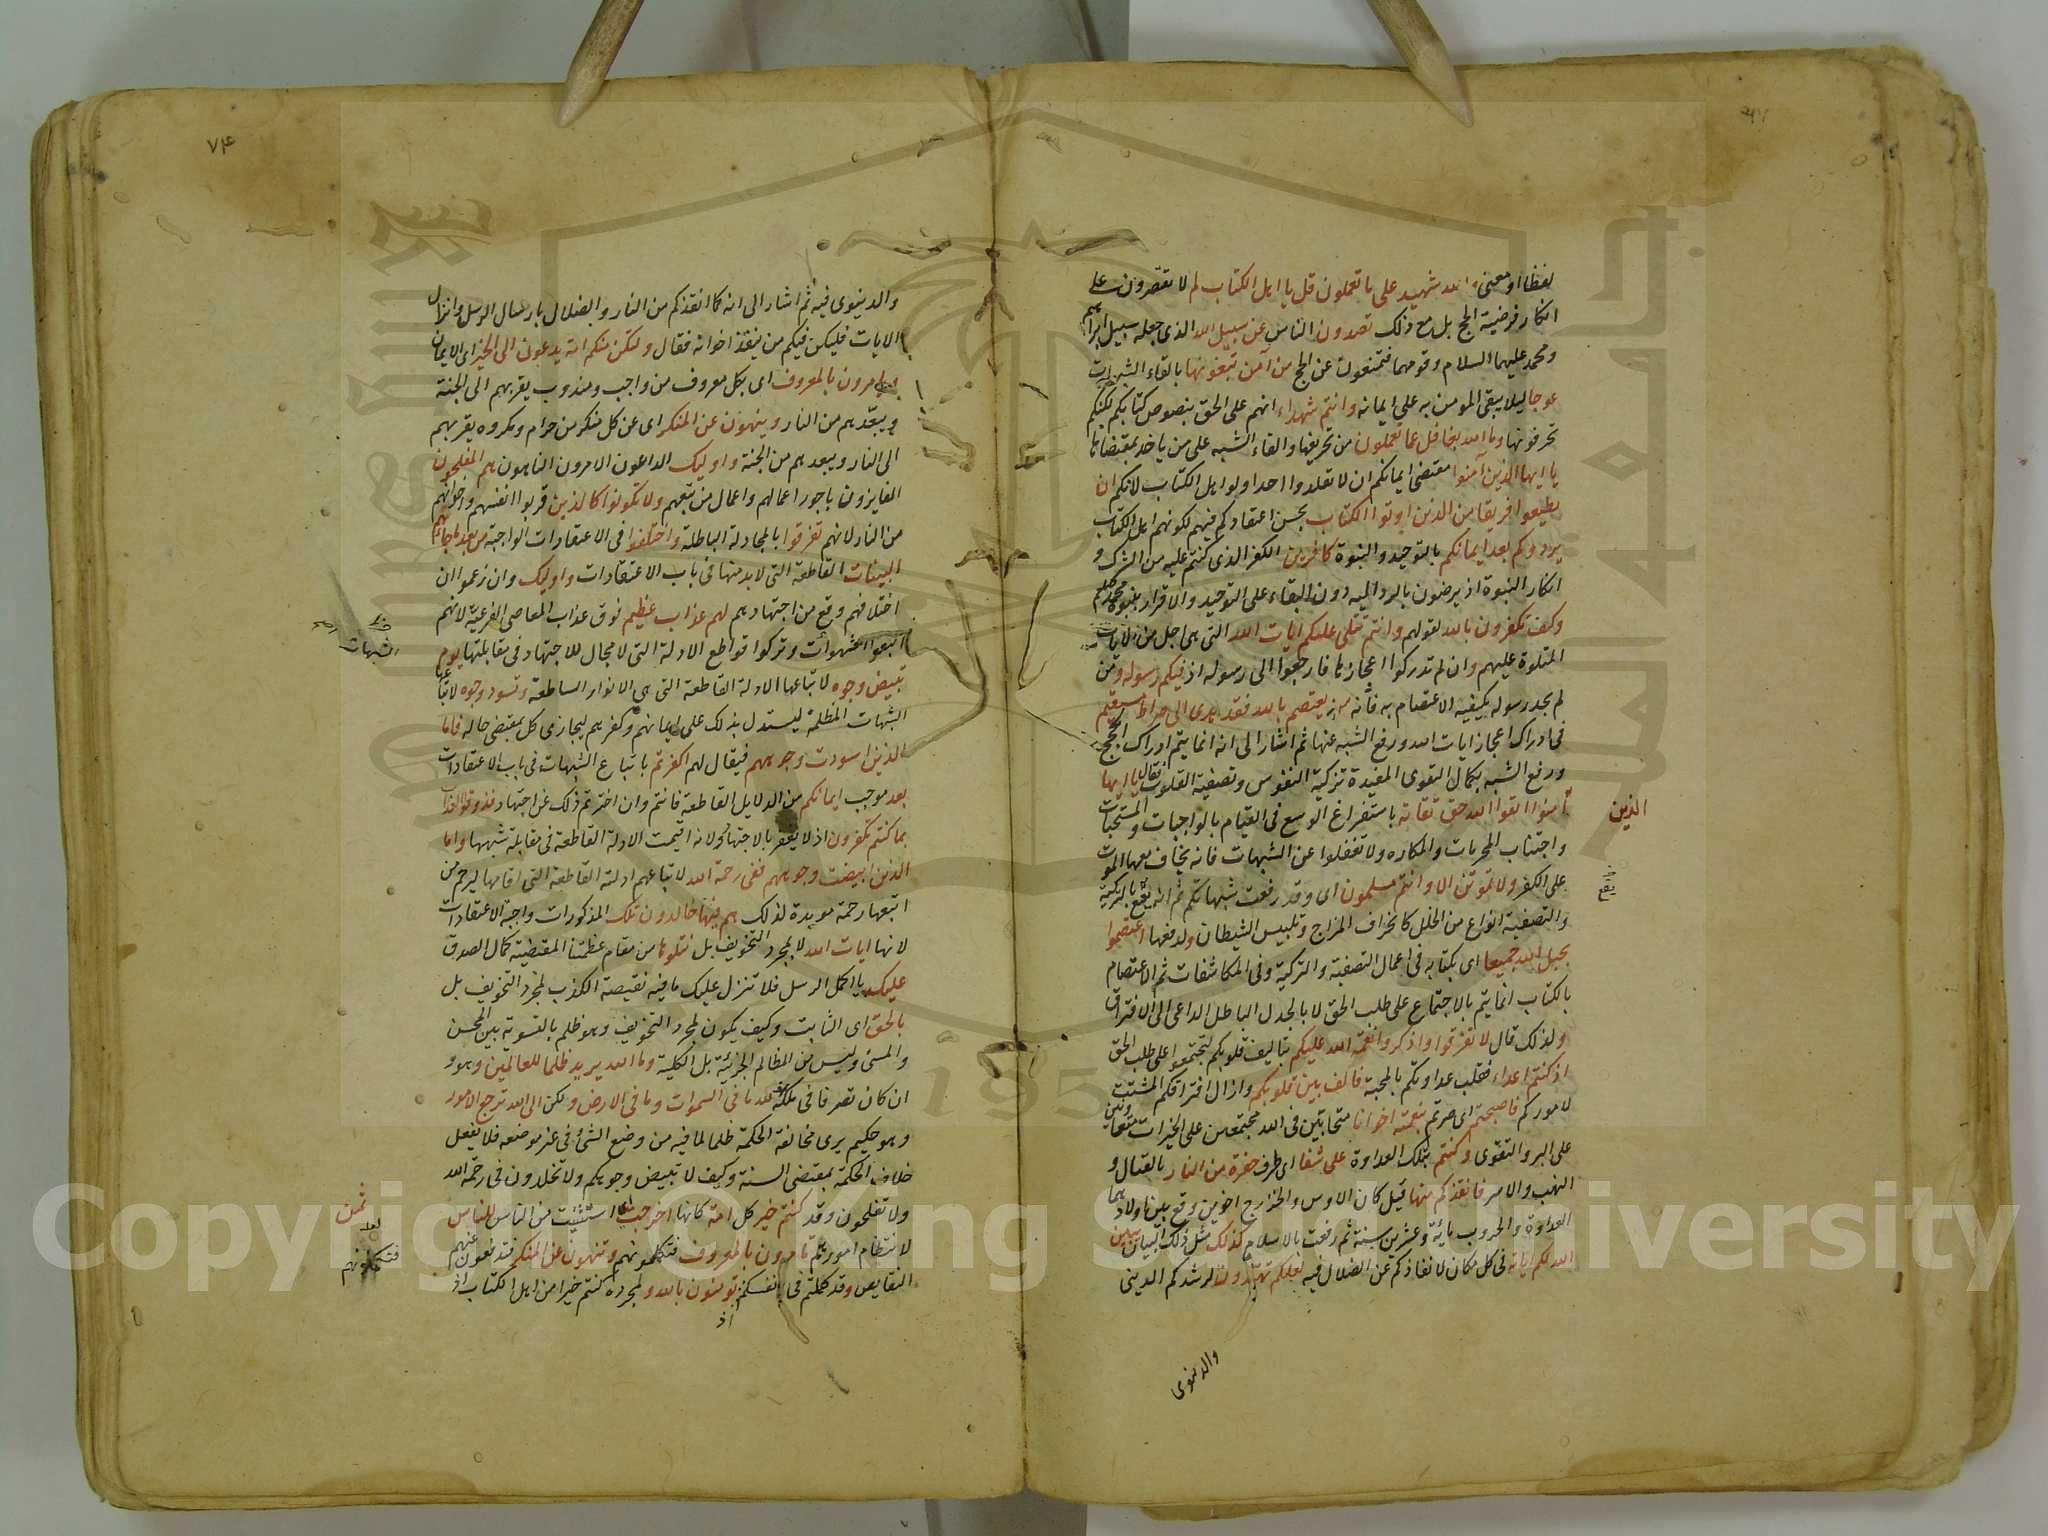 لفظا او معنى والله شهيد على ما تعملون قل يا اهل الكتاب لم لا تقصرون على
انكار فرضية الحج بل مع ذلك تصدون الناس عن سبيل الله الذي جعله سبيل ابراهيم
ومحمد عليهما السلام وقومهما فتمنعون عن الحج من آمن تبغونها بالقاء الشبهات
عوجا ليلا يبقى المومن به على ايمانه وانتم شهداء انهم على الحق بنصوص كتابكم لكنكم
تحرفونها وما الله بغافل عما تعملون من تحريفها والقاء الشبه على من ياخذ بمقتضاها
يا ايها الذين آمنوا مقتضى ايمانكم ان لا تقلدوا احدا ولو اهل الكتاب لانكم ان
تطيعوا فريقا من الذين اوتوا الكتاب بحسن اعتقادكم فيهم لكونهم اهل الكتاب
يردوكم بعد ايمانكم بالتوحيد والنبوة كافرين الكفر الذي كنتم عليه من الشرك و
انكار النبوة اذ يرضون بالرد اليه دون البقاء على التوحيد والاقرار بنبوة محمد
وكيف تكفرون بالله لقولهم وانتم تتلى عليكم ايات الله التي هي اجل من الايات
المتلوة عليهم وان لم تدركوا اعجازها فارجعوا الى رسوله اذ فيكم رسوله ومن
لم يجد رسوله بكيفيه الاعتصام به فانه من يعتصم بالله فقد هدى الى صراط مستقيم
في ادراك اعجاز ايات الله ورفع الشبه عنها ثم اشار الى انه انما يتم ادراك الحجج
ورفع الشبه بكمال التقوى المفيدة تزكية النفوس وتصفية القلوب فقال يا ايها
الذين
آمنوا اتقوا الله حق تقاته باستفراغ الوسع في القيام بالواجبات والمستحبات
واجتناب المحرمات والمكاره ولا تغفلوا عن الشبهات فانه يخاف معها الموت
على الكفر ولا تموتن الا وانتم مسلمون اى وقد رفعت شبهاتكم ثم انه يقع بالتزكية
يقع
والتصفية انواع من الخلل كانحراف المزاج وتلبيس الشيطان ولدفعها اعتصموا
بحبل الله جميعا اى بكتابه في اعمال التصفية والتزكية وفي المكاشفات ثم الاعتصام
بالكتاب انما يتم بالاجتماع على طلب الحق لا بالجدل الباطل الداعى الى الافتراق
ولذلك قال لا تفرقوا واذكروا نعمة الله عليكم بتاليف قلوبكم لتجتمعوا على طلب الحق
اذ كنتم اعداء فقلب عداوتكم بالمحبة فالف بين قلوبكم وازال افتراقكم المشتت
لاموركم فاصبحتم اى صرتم بنعمته اخوانا متحابين في الله مجتمعين على الخيرات متعاونين
على البر والتقوى وكنتم بتلك العداوة على شفا اى طرف حفرة من النار بالقتال و
النهب والاسر فانقذكم منها قيل كان الاوس والخزرج اخوين وقع بين اولادهما
العداوة والحروب مائة وعشرين سنة ثم رفعت بالاسلام كذلك مثل ذلك التبيان يبين
الله لكم اياته في كل مكان لانقاذكم عن الضلال فيه لعلكم تهتدون لرشدكم الديني
والدنيوى
٧٤
والدنيوى فيه ثم اشار الى انه كما انقذكم من النار والضلال بارسال الرسل وانزال
الايات فليكن فيكم من ينقذ اخوانه فقال ولتكن منكم امة يدعون الى الخير اى الايمان
ويامرون بالمعروف اى بكل معروف من واجب ومندوب يقربهم الى الجنة
ويبعدهم من النار وينهون عن المنكر اى عن كل منكر من حرام ومكروه يقربهم
الى النار ويبعدهم من الجنة واوليك الداعون الامرون الناهون هم المفلحون
الفايزون باجور اعمالهم واعمال من تبعهم ولا تكونوا كالذين قربوا انفسهم واخوانهم
من النار لانهم تفرقوا بالمجادلة الباطلة واختلفوا في الاعتقادات الواجبة من بعد ما جاءهم
البينات القاطعة التي لا بد منها في باب الاعتقادات واوليك وان زعموا ان
اختلافهم وقع من اجتهادهم لهم عذاب عظيم فوق عذاب المعاصى الفرعية لانهم
اتبعوا الشبهات وتركوا قواطع الادلة التي لا مجال للاجتهاد في مقابلتها يوم
الشبهات
تبيض وجوه لاتباعها الادلة القاطعة التي هي الانوار الساطعة وتسود وجوه لاتباعها
الشبهات المظلمة ليستدل بذلك على ايمانهم وكفرهم ليجازى كل بمقتضى حاله فاما
الذين اسودت وجوههم فيقال لهم اكفرتم باتباع الشبهات في باب الاعتقادات
بعد موجب ايمانكم من الدلايل القاطعة فانتم وان اخترتم ذلك عن اجتهاد فذوقوا العذاب
بما كنتم تكفرون اذ لا يغفر بالاجتهاد لانه اقيمت الادلة القاطعة في مقابلة شبهها واما
الذين ابيضت وجوههم ففى رحمة الله لاتباعهم ادلته القاطعة التي اقامها ليرحم من
اتبعها رحمة مويدة لذلك هم فيها خالدون تلك المذكورات واجبة الاعتقادات
لانها ايات الله لا لمجرد التخويف بل نتلوها من مقام عظمتنا المقتضية كمال الصدق
عليك يا اكمل الرسل فلا تنزل عليك ما فيه نقيصة الكذب لمجرد التخويف بل
بالحق اى الثابت وكيف يكون لمجرد التخويف وهو ظلم بالتسوية بين المحسن
والمسئ وليس من المظالم الجزئية بل الكلية وما الله يريد ظلما للعالمين وهو و
ان كان تصرفا في ملكه لله ما في السموات وما في الارض ولكن الى الله ترجع الامور
وهو حكيم يرى مخالفة الحكمة ظلما لما فيه من وضع الشئ في غير موضعه فلا يفعل
خلاف الحكمة بمقتضى السنة وكيف لا تبيض وجوهكم ولا تخلدون في رحمة الله
ولا تفلحون وقد كنتم خير كل امة كانها اخرجت استثنيت من الناس للناس
لانتظام امورهم تامرون بالمعروف فتكملونهم وتنهون عن المنكر فتدفعون عنهم
فتكملونهم
النقايص وقد كملتم في انفسكم تومنون بالله ولمجرده كنتم خيرا من اهل الكتاب اذ
اذ
Copyright © King Saud University